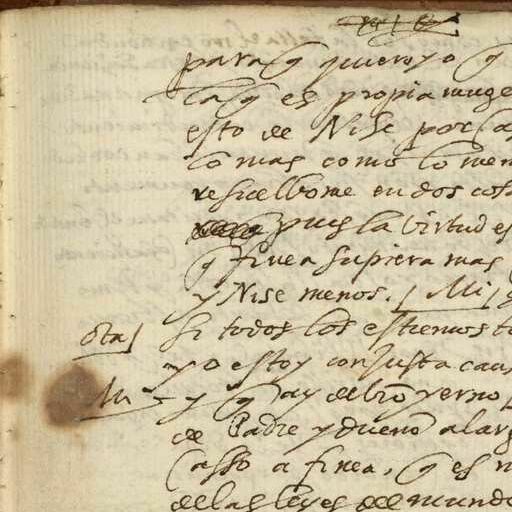 para q̃ quiero yo q̃
la q̃ es propia muge
esto de Nise por cas
lo mas como lo men
resuelbome en dos cosa
pues la virtud es
q̃ finea supiera mas
y Nise menos. / Mi /
ota / si todos los estremos t
yo estoy con justa caus
Mi - y q̃ ay de bro yerno
de Padre y dueño alarg
casso a finea, q̃ es
de las leyes del mundo